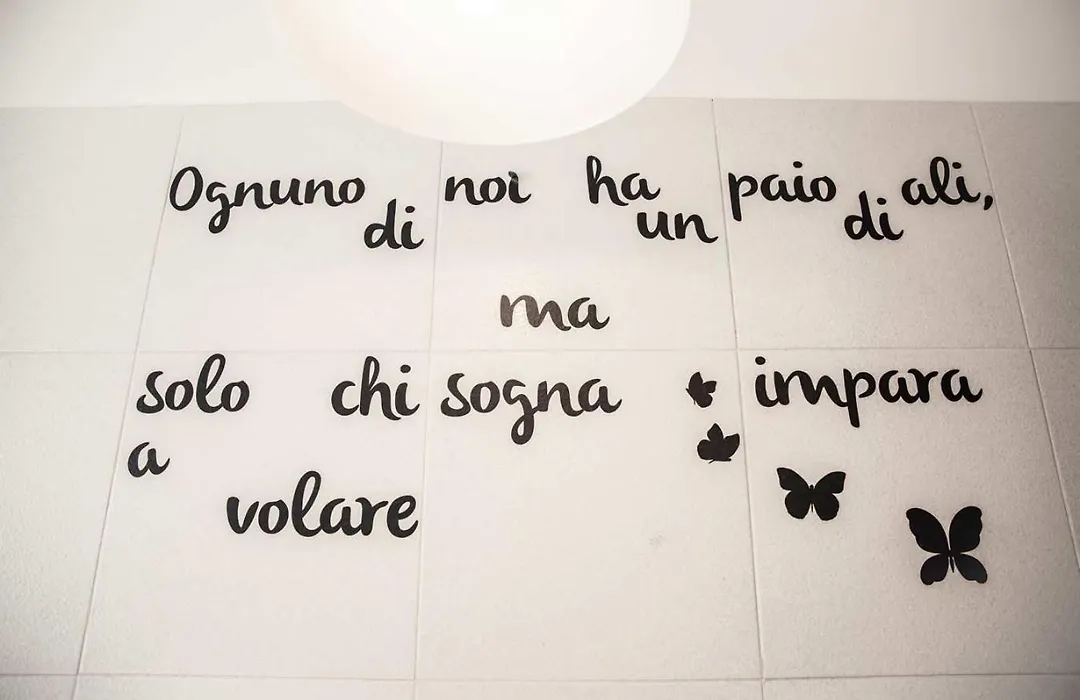 Ognuno di noi ha un paio di ali,
ma
solo chi sogna impara
a
volare